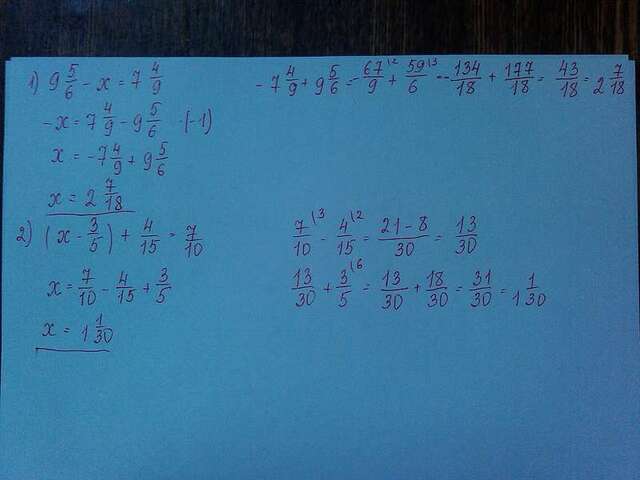 1) 9 5/6 - x = 7 4/9
-x = 7 4/9 - 9 5/6 ·(-1)
x = -7 4/9 + 9 5/6
x = 2 7/18
-7 4/9 + 9 5/6 = -67/9 \2 + 59/6 \3 = -134/18 + 177/18 = 43/18 = 2 7/18
2) (x - 3/5) + 4/15 = 7/10
x = 7/10 - 4/15 + 3/5
x = 1 1/30
7/10 \3 - 4/15 \2 = 21-8/30 = 13/30
13/30 + 3/5 \6 = 13/30 + 18/30 = 31/30 = 1 1/30